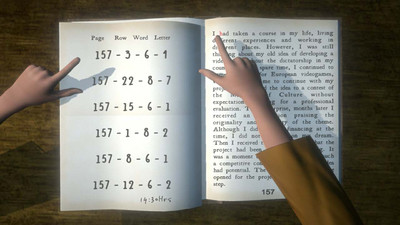 Page Row Word Letter
157 - 3 - 6 - 1
157 - 22 - 8 - 7
157 - 15 - 6 - 1
157 - 1 - 8 - 2
157 - 8 - 6 - 1
157 - 12 - 6 - 2
I had taken a course in my life, living
experiences and working in
places. However, I was still
about my old idea of developing a
the dictatorship in my
time, I continued to
for European videogames,
to continue with my
the idea to a content of
of Culture without
for a professional
evaluation. months later I
received an praising the
originality and of the theme.
Although I did financing at the
time, I did not on my dream.
Then I received that the
project had been It
was a moment
a competitive
had potential. The
opened for the project
step.
157